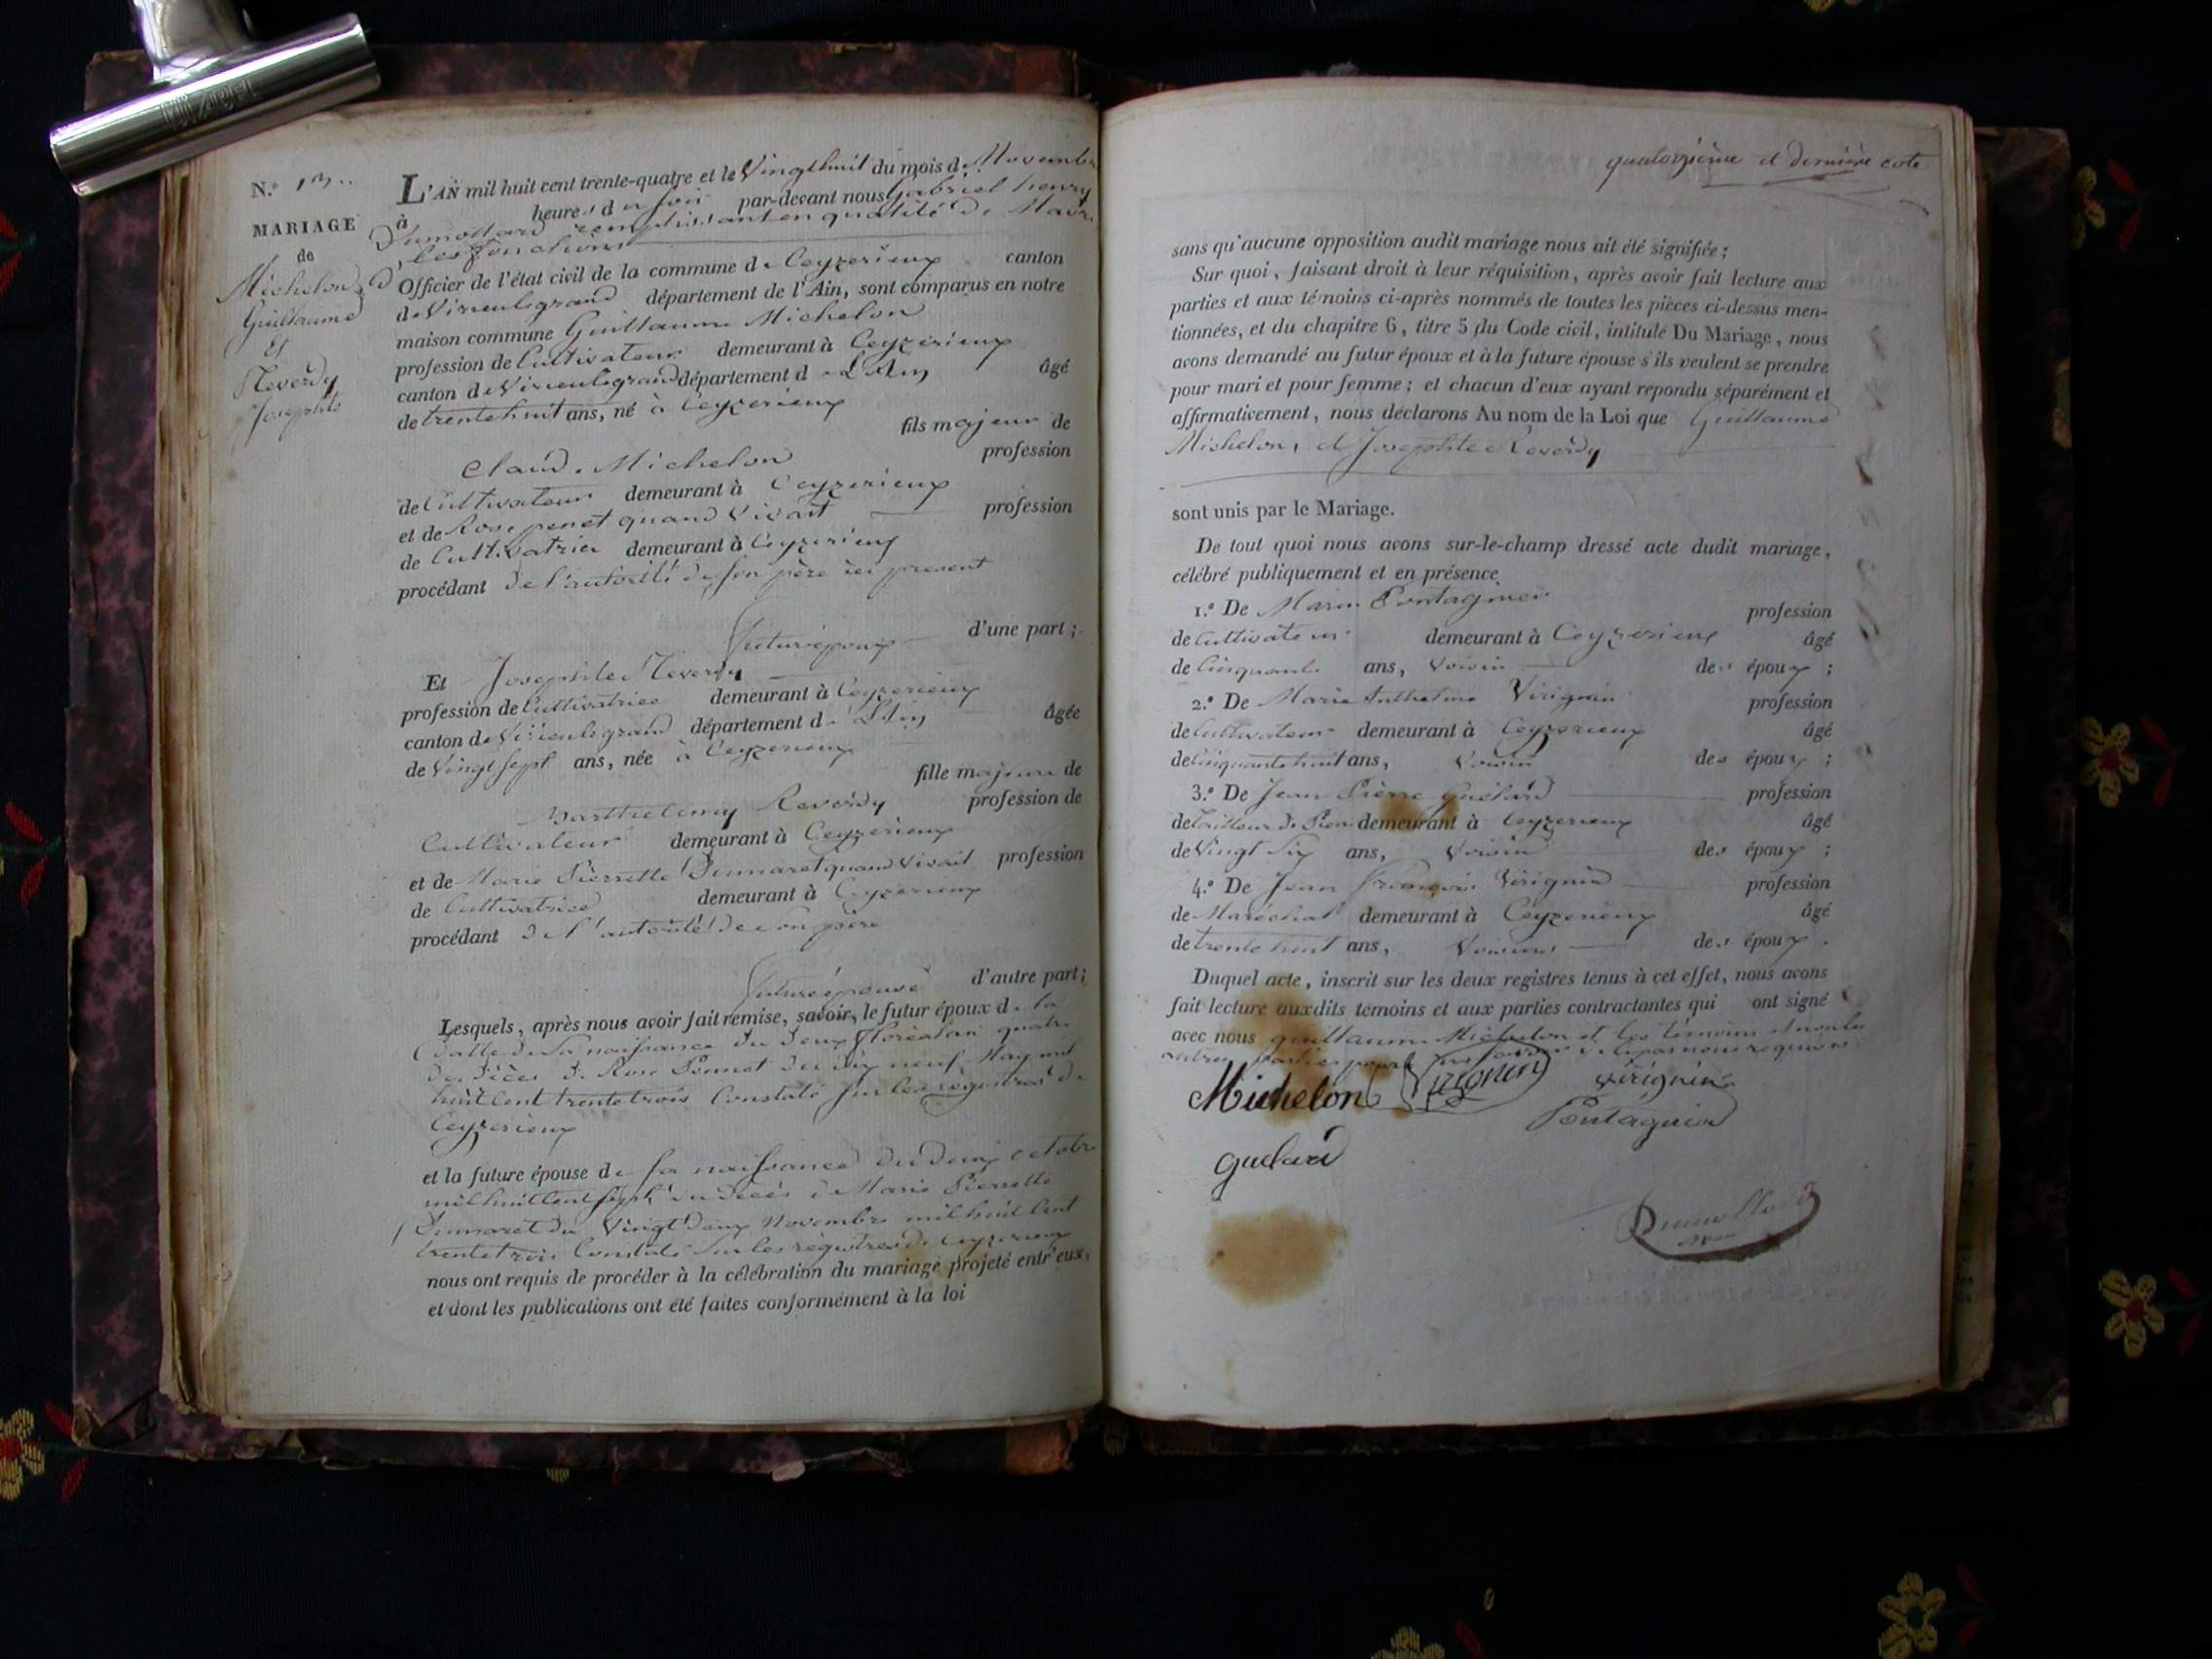 N.º 13
MARIAGE
de
Michelon
Guillaume
Et
Reverdy
Josephte
L'AN mil huit cent trente-quatre et le Vingt huit du mois de Novembre
à heures du soir par-devant nous Gabriel henry
Dumollard remplissant en qualité de Maire
les fonctions
d'Officier de l'état civil de la commune de Ceyzerieux canton
de Virieulegrand département de l'Ain, sont comparus en notre
maison commune Guillaume Michelon
profession de Cultivateur demeurant à Ceyzerieux
canton de Virieulegrand département de L'Ain âgé
de trente huit ans, né à Ceyzerieux
fils majeur de
Claude Michelon profession
de Cultivateur demeurant à Ceyzerieux
et de Rose penet quand vivait profession
de Cultivatrice demeurant à Ceyzerieux
procédant de l'autorité de son père ici present
futur époux d'une part;
Et Josephte Reverdy
profession de Cultivatrice demeurant à Ceyzerieux
canton de Virieulegrand département de L'Ain âgée
de Vingt sept ans, née à Ceyzerieux
fille majeure de
Barthelemy Reverdy profession de
Cultivateur demeurant à Ceyzerieux
et de Marie Pierrette Dumaret quand vivait profession
de Cultivatrice demeurant à Ceyzerieux
procédant de l'autorité de son père
future épouse d'autre part;
Lesquels, après nous avoir fait remise, savoir, le futur époux de la
datte de sa naissance du deux floréal an quatre
du décès de Rose Pennet du dix neuf May mil
huit cent trente trois Constaté sur les registres de
Ceyzerieux
et la future épouse de sa naissance du deux octobre
mil huit cent sept du décès de Marie Pierrette
Dumaret du Vingt deux Novembre mil huit cent
trente trois Constaté sur les registres de Ceyzerieux
nous ont requis de procéder à la célébration du mariage projeté entr'eux,
et dont les publications ont été faites conformément à la loi
quatorzième et dernière cote
sans qu'aucune opposition audit mariage nous ait été signifiée;
Sur quoi, faisant droit à leur réquisition, après avoir fait lecture aux
parties et aux témoins ci-après nommés de toutes les pièces ci-dessus men-
tionnées, et du chapitre 6, titre 5 du Code civil, intitulé Du Mariage, nous
avons demandé au futur époux et à la future épouse s'ils veulent se prendre
pour mari et pour femme; et chacun d'eux ayant répondu séparément et
affirmativement, nous déclarons Au nom de la Loi que Guillaume
Michelon, et Josephte Reverdy
sont unis par le Mariage.
De tout quoi nous avons sur-le-champ dressé acte dudit mariage,
célébré publiquement et en présence
1.º De Marin Pontagnier profession
de Cultivateur demeurant à Ceyzerieux âgé
de Cinquante ans, Voisin des époux;
2.º De Marie Anthelme Virignin profession
de Cultivateur demeurant à Ceyzerieux âgé
de Cinquante huit ans, Voisin des époux;
3.º De Jean Pierre Guélard profession
de tailleur de Pierre demeurant à Ceyzerieux âgé
de Vingt Six ans, Voisin des époux;
4.º De Jean François Virignin profession
de Maréchal demeurant à Ceyzerieux âgé
de trente huit ans, Voisin des époux.
Duquel acte, inscrit sur les deux registres tenus à cet effet, nous avons
fait lecture auxdits témoins et aux parties contractantes qui ont signé
avec nous guillaume Michelon et les témoins et non les
autres parties pour de ce requis
Michelon Virignin virignin
Pontagnier
guelard
Dumollard